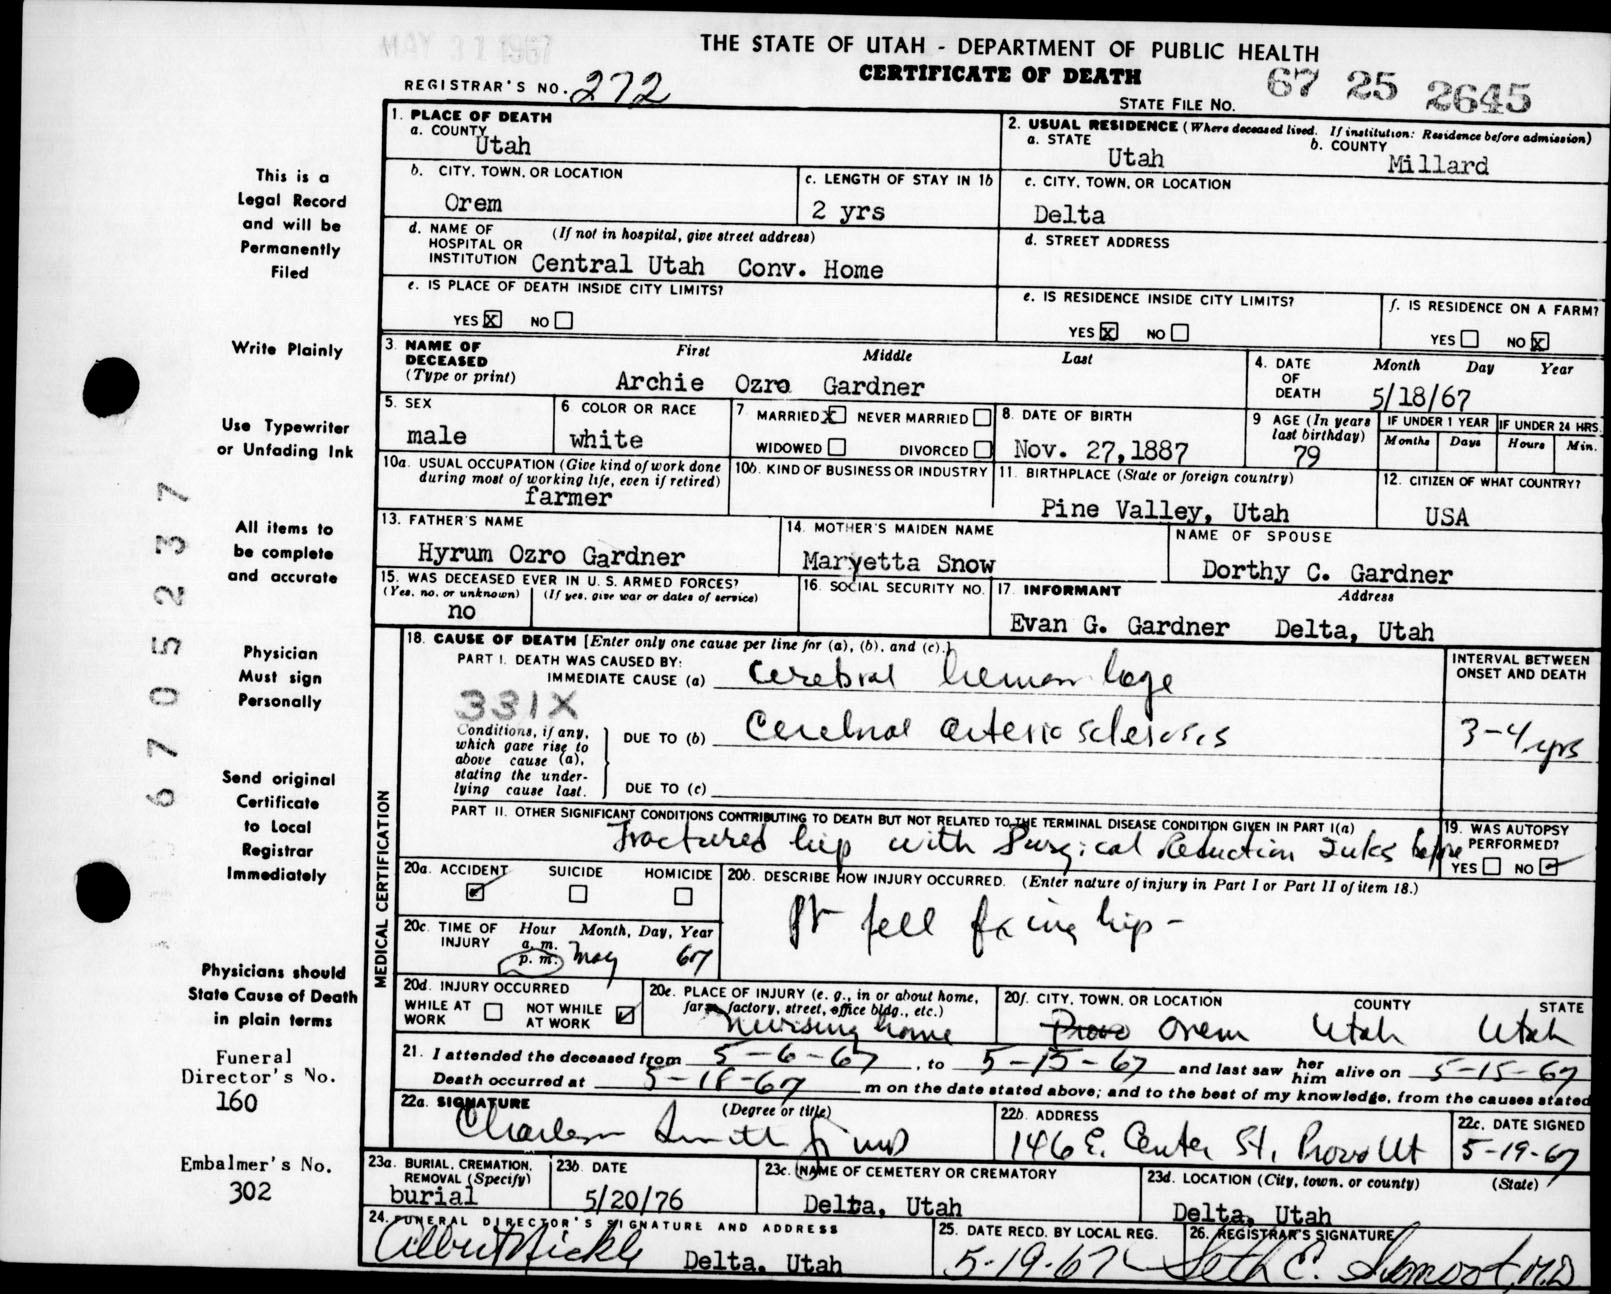 MAY 31 1967
THE STATE OF UTAH - DEPARTMENT OF PUBLIC HEALTH
CERTIFICATE OF DEATH
REGISTRAR'S NO. 272
STATE FILE NO. 67 25 2645
1. PLACE OF DEATH
a. COUNTY
Utah
2. USUAL RESIDENCE (Where deceased lived. If institution: Residence before admission)
a. STATE b. COUNTY
Utah Millard
b. CITY, TOWN, OR LOCATION
Orem
c. LENGTH OF STAY IN 1b
2 yrs
c. CITY, TOWN, OR LOCATION
Delta
d. NAME OF HOSPITAL OR INSTITUTION (If not in hospital, give street address)
Central Utah Conv. Home
d. STREET ADDRESS
e. IS PLACE OF DEATH INSIDE CITY LIMITS?
YES X NO
e. IS RESIDENCE INSIDE CITY LIMITS?
YES X NO
f. IS RESIDENCE ON A FARM?
YES NO X
3. NAME OF DECEASED (Type or print) First Middle Last
Archie Ozro Gardner
4. DATE OF DEATH Month Day Year
5/18/67
5. SEX
male
6 COLOR OR RACE
white
7 MARRIED X NEVER MARRIED
WIDOWED DIVORCED
8. DATE OF BIRTH
Nov. 27,1887
9 AGE (In years last birthday)
79
IF UNDER 1 YEAR IF UNDER 24 HRS.
Months Days Hours Min.
10a. USUAL OCCUPATION (Give kind of work done during most of working life, even if retired)
farmer
10b. KIND OF BUSINESS OR INDUSTRY
11. BIRTHPLACE (State or foreign country)
Pine Valley, Utah
12. CITIZEN OF WHAT COUNTRY?
USA
13. FATHER'S NAME
Hyrum Ozro Gardner
14. MOTHER'S MAIDEN NAME
Maryetta Snow
NAME OF SPOUSE
Dorthy C. Gardner
15. WAS DECEASED EVER IN U. S. ARMED FORCES?
(Yes, no, or unknown) (If yes, give war or dates of service)
no
16. SOCIAL SECURITY NO.
17. INFORMANT Address
Evan G. Gardner Delta, Utah
MEDICAL CERTIFICATION
18. CAUSE OF DEATH [Enter only one cause per line for (a), (b), and (c).]
PART I. DEATH WAS CAUSED BY:
IMMEDIATE CAUSE (a) Cerebral hemorrhage
331X
Conditions, if any, which gave rise to above cause (a), stating the underlying cause last.
DUE TO (b) Cerebral arteriosclerosis
DUE TO (c)
INTERVAL BETWEEN ONSET AND DEATH
3-4 yrs
PART II. OTHER SIGNIFICANT CONDITIONS CONTRIBUTING TO DEATH BUT NOT RELATED TO THE TERMINAL DISEASE CONDITION GIVEN IN PART I(a)
Fractured hip with Surgical Reduction 2wks before
19. WAS AUTOPSY PERFORMED?
YES NO
20a. ACCIDENT SUICIDE HOMICIDE
20b. DESCRIBE HOW INJURY OCCURRED. (Enter nature of injury in Part I or Part II of item 18.)
Pt fell fxing hip -
20c. TIME OF INJURY Hour Month, Day, Year
a. m.
p. m. May 67
20d. INJURY OCCURRED
WHILE AT WORK NOT WHILE AT WORK
20e. PLACE OF INJURY (e. g., in or about home, farm, factory, street, office bldg., etc.)
nursing home
20f. CITY, TOWN, OR LOCATION COUNTY STATE
Provo Orem Utah Utah
21. I attended the deceased from 5-6-67, to 5-15-67 and last saw her him alive on 5-15-67
Death occurred at 5-18-67 m on the date stated above; and to the best of my knowledge, from the causes stated
22a. SIGNATURE (Degree or title)
Charles Smith Jr MD
22b. ADDRESS
146 E. Center St, Provo Ut
22c. DATE SIGNED
5-19-67
23a. BURIAL, CREMATION, REMOVAL (Specify)
burial
23b. DATE
5/20/76
23c. NAME OF CEMETERY OR CREMATORY
Delta, Utah
23d. LOCATION (City, town, or county) (State)
Delta, Utah
24. FUNERAL DIRECTOR'S SIGNATURE AND ADDRESS
Albert Nickle Delta, Utah
25. DATE RECD. BY LOCAL REG.
5-19-67
26. REGISTRAR'S SIGNATURE
Seth E. Smoot, M.D
This is a
Legal Record
and will be
Permanently
Filed
Write Plainly
Use Typewriter
or Unfading Ink
All items to
be complete
and accurate
Physician
Must sign
Personally
Send original
Certificate
to Local
Registrar
Immediately
Physicians should
State Cause of Death
in plain terms
Funeral
Director's No.
160
Embalmer's No.
302
6705237